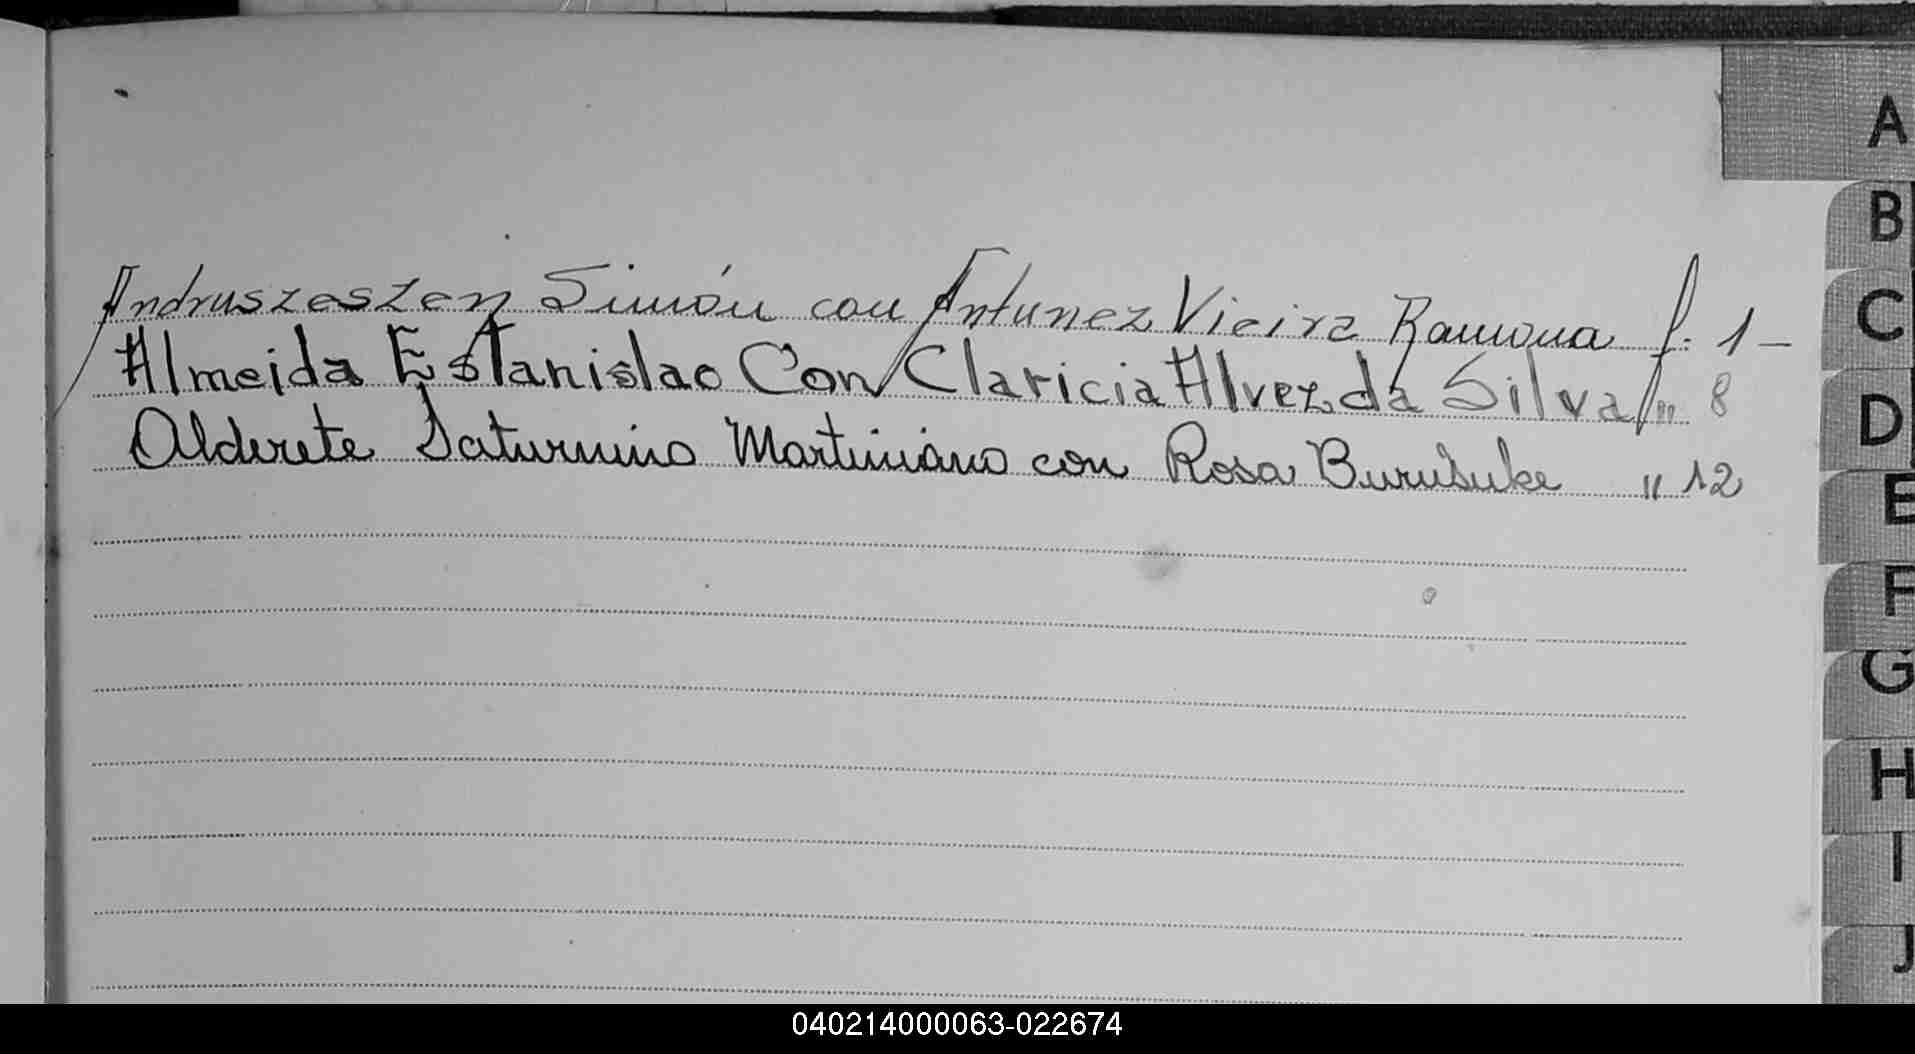 A
B
C
D
E
F
G
H
I
J
Andruszeszen Simón con Antunez Vieira Ramona f. 1 -
Almeida Estanislao Con Claricia Alvez da Silva " 8
Alderete Saturnino Martiniano con Rosa " 12
040214000063-022674